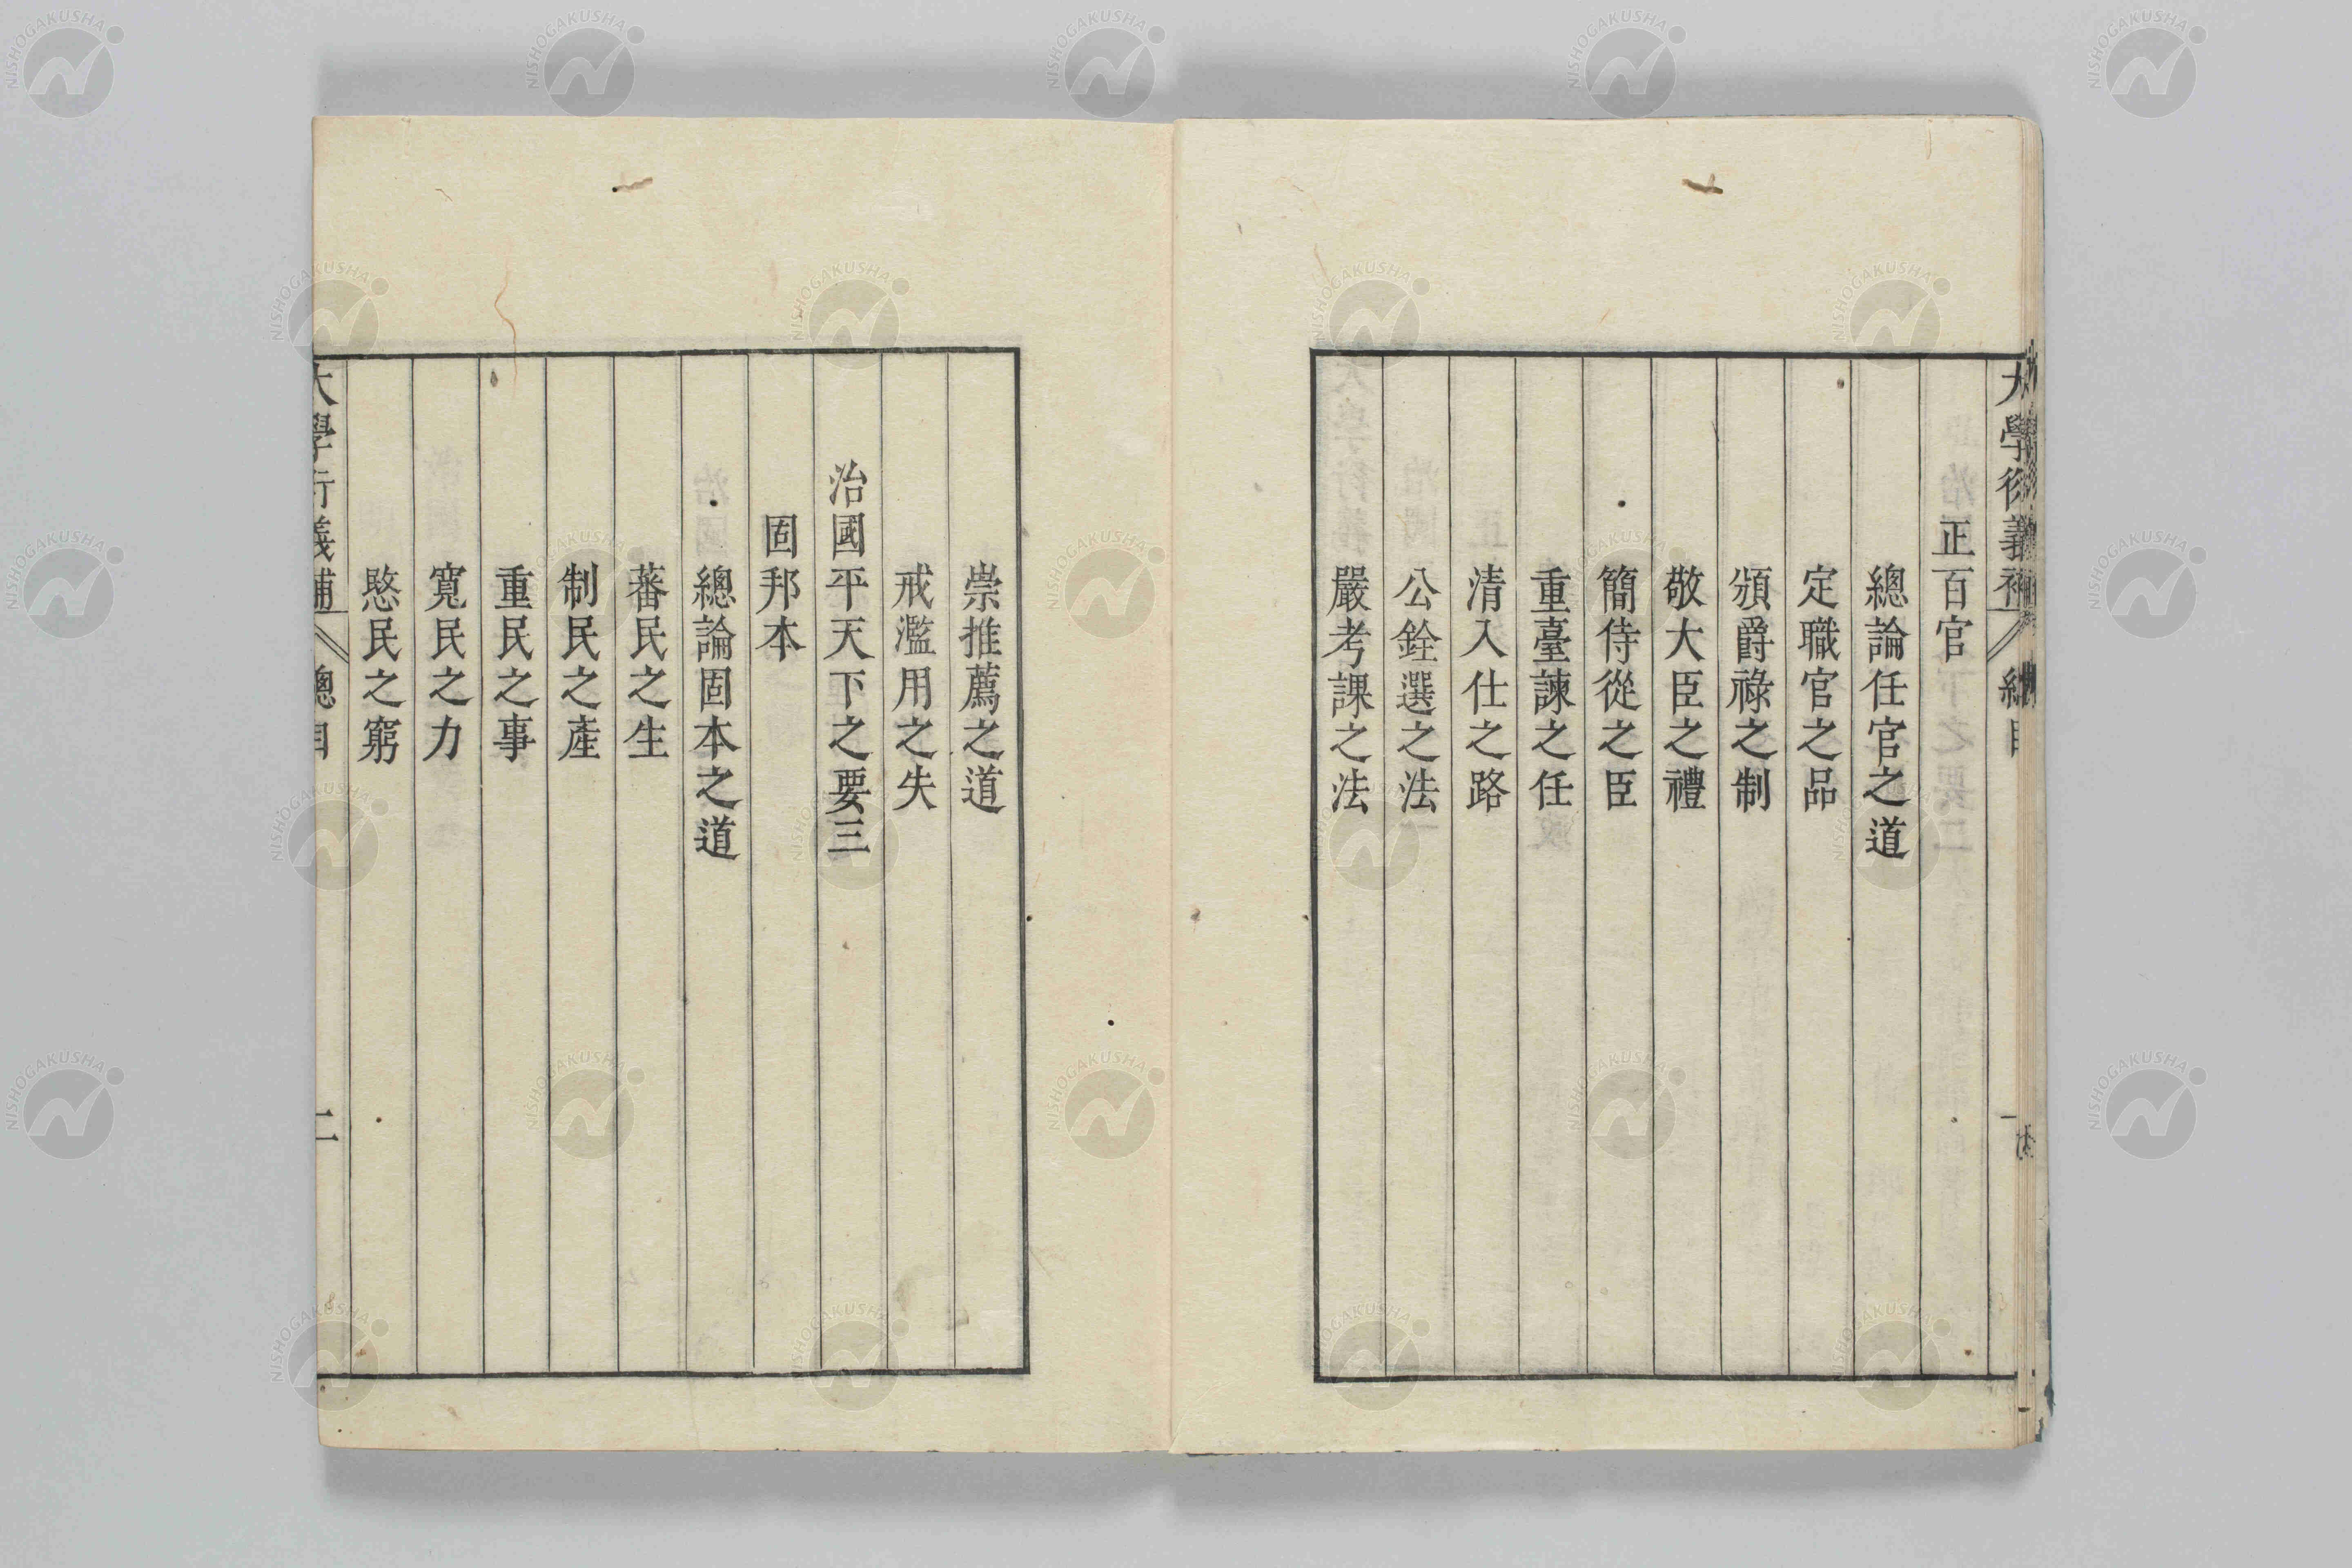 大學衍義補 總目 一
正百官
總論任官之道
定職官之品
頒爵祿之制
敬大臣之禮
簡侍從之臣
重臺諫之任
清入仕之路
公銓選之法
嚴考課之法
崇推薦之道
戒濫用之失
治國平天下之要三
固邦本
總論固本之道
蕃民之生
制民之產
重民之事
寬民之力
愍民之窮
大學衍義補 總目 二
NISHOGAKUSHA